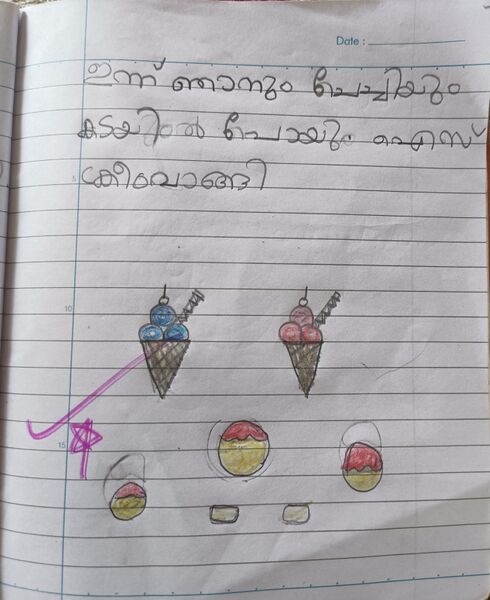 Date :
ഇന്ന് ഞാനും ചേച്ചിയും
കടയിൽ പോയും ഐസ്
ക്രീംവാങ്ങി
5
10
15